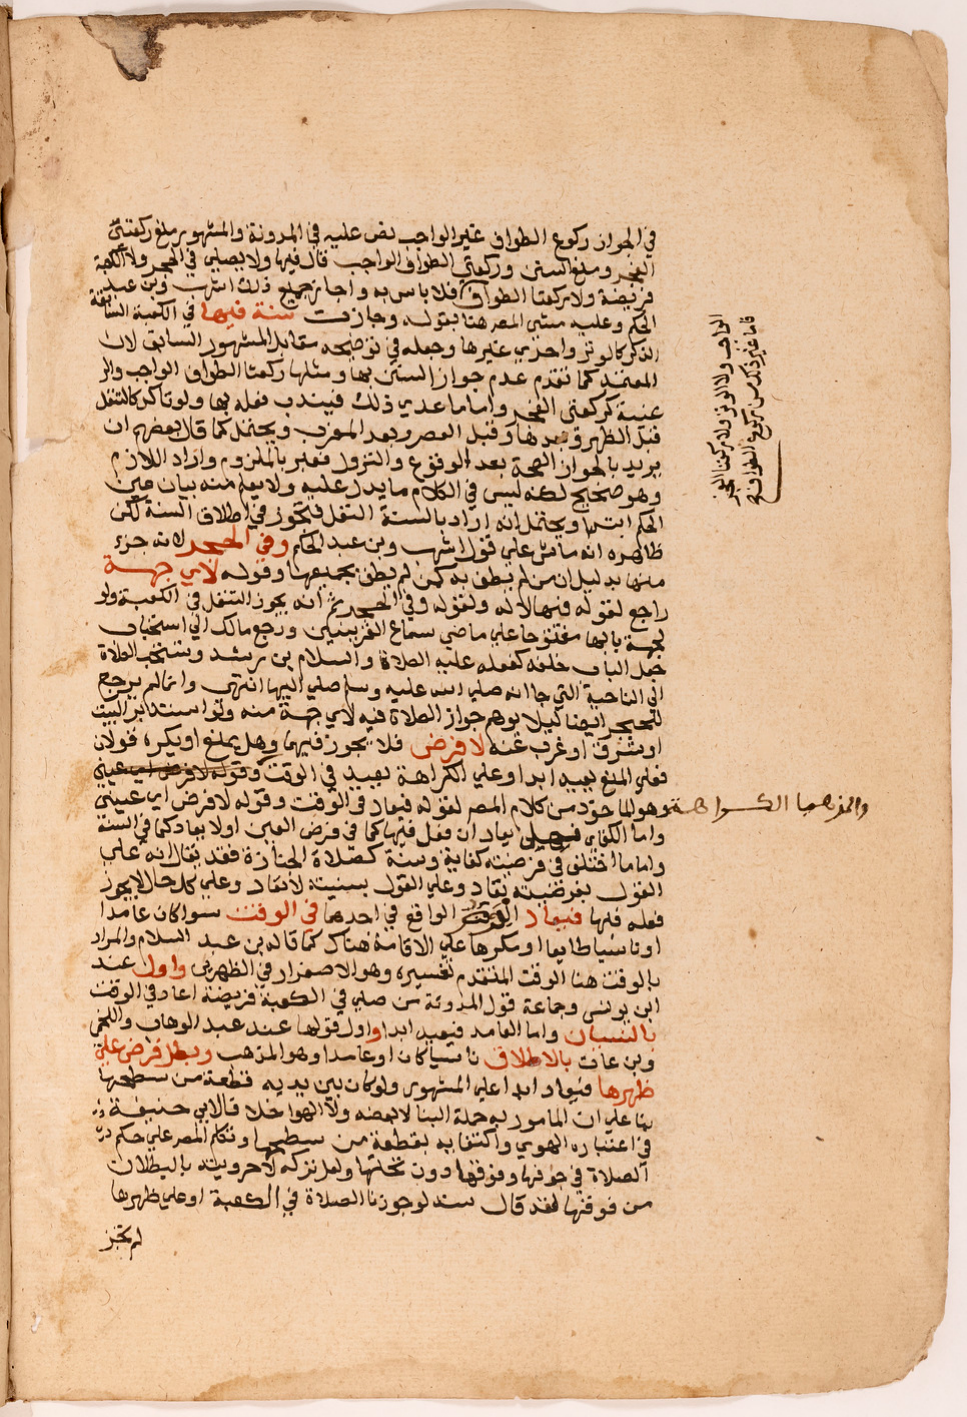 في الجواز ركوع الطواف غير الواجب نص عليه في المدونة والمشهور منع ركعتي
الفجر ومنع السنن وركعتي الطواف الواجب قال فيها ولا يصلي في الحجر ولا الكعبة
فريضة ولا ركعتا الطواف فلا باس به واجاز جميع ذلك اشهب وبن عبد
الحكم وعليه مشي المصر هنا بقوله وجازت سنة فيها في الكعبة السابقة
الذكر كالوتر واحري غيرها وجعله في توضيحه مقابل المشهور السابق لان
المعتمد كما تقدم عدم جواز السنن بها ومثلها ركعتا الطواف الواجب والر
غيبة كركعتي الفجر واما ما عدي ذلك فيندب فعله بها ولو تاكد كالنفل
قبل الظهر وبعدها وقبل العصر وبعد المغرب ويحتمل كما قال بعضهم ان
يريد بالجواز الصحة بعد الوقوع والنزول فعبر بالملزوم واراد اللازم
وهو صحيح لكنه ليس في الكلام ما يدل عليه ولا يعلم منه بيان عين
الحكم ابتدا ويحتمل انه اراد بالسنة النفل فتجوز في اطلاق السنة لكن
ظاهره انه ماش علي قول اشهب وبن عبد الحكم وفي الحجر لانه جزء
منها بدليل ان من لم يطف به كمن لم يطف بجميعها وقوله لاي جهة
راجع لقوله فيها لا له ولقوله وفي الحجر ثم انه يجوز التنفل في الكعبة ولو
لجهة بابها مفتوحا علي ما في سماع القرينين ورجع مالك الي استحباب
جعل الباب خلفه كفعله عليه الصلاة والسلام بن رشد وتستحب الصلاة
الي الناحية التي جا انه صلي الله عليه وسلم صلي اليها انتهي وانما لم يرجع
للحجر ايضا ليلا يوهم جواز الصلاة فيه لاي جهة منه ولو استدبر البيت
او شرق او غرب عنه لا فرض فلا يجوز فيهما وهل يمنع او يكره قولان
فعلي المنع يعيد ابدا وعلي الكراهة يعيد في الوقت وقوله لا فرض اي عيني
وهو الماخوذ من كلام المصر لقوله فيعاد في الوقت وقوله لا فرض اي عيني
واما الكفاي فهل يعاد ان فعل فيها كما في فرض العين او لا يعاد كما في السنة
واما ما اختلف في فرضيته كفاية وسنة كصلاة الجنازة فقد يقال انه علي
القول بفرضيته يعاد وعلي القول بسنيته لا تعاد وعلي كل حال لا يجوز
فعله فيها فيعاد الواقع في احدها في الوقت سوا كان عامدا
او ناسيا طايعا او مكرها علي الاقامة هناك كما قاله بن عبد السلام والمراد
بالوقت هنا الوقت المتقدم تفسيره وهو الاصفرار في الظهرين واول عند
ابن يونس وجماعة قول المدونة من صلي في الكعبة فريضة اعاد في الوقت
بالنسيان واما العامد فيعيد ابدا واول قولها عند عبد الوهاب واللخمي
وبن عات بالاطلاق ناسيا كان او عامدا وهو المذهب وبطل فرض علي
ظهرها فيعاد ابدا علي المشهور ولو كان بين يديه قطعة من سطحها
بنا علي ان المامور به جملة البنا لا بعضه ولا الهوا خلافا لابي حنيفة
في اعتباره الهوي واكتفايه بقطعة من سطحها وتكلم المصر علي حكم
الصلاة في جوفها وفوقها دون تحتها ولعل تركه لاحرويته بالبطلان
من فوقها فقد قال سند لو جوزنا الصلاة في الكعبة او علي ظهرها
لم تجز
والمذهب الكراهة
فاما غير ذلك من ركوع الطواف
الواجب ولا الوتر ولا ركعتا الفجر